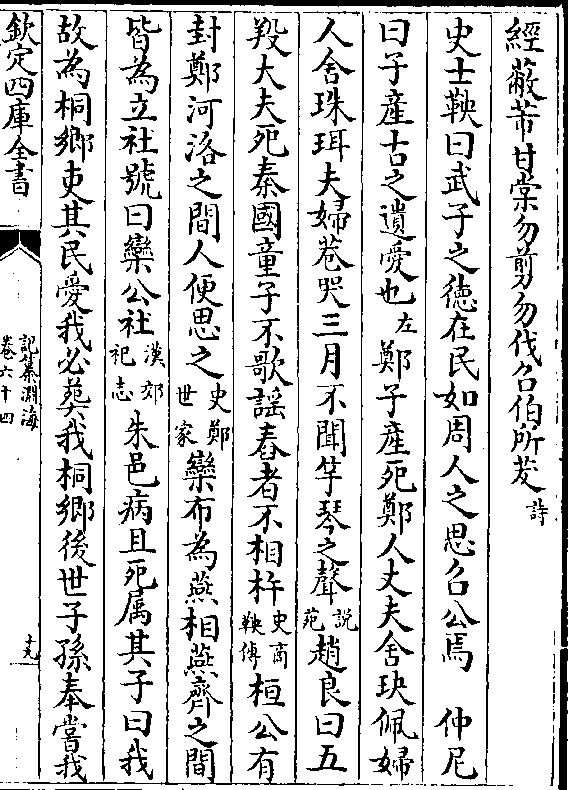 經蔽芾甘棠勿剪勿伐召伯所茇詩
史士鞅曰武子之德在民如周人之思召公焉　仲尼
曰子產古之遺愛也左鄭子產死鄭人丈夫舍玦佩婦
人舍珠珥夫婦巷哭三月不聞竽琴之聲說苑趙良曰五
羖大夫死秦國童子不歌謡舂者不相杵史商鞅傳桓公有
封鄭河洛之間人便思之史鄭世家欒布為燕相燕齊之間
皆為立社號曰欒公社漢郊祀志朱邑病且死属其子曰我
故為桐鄉吏其民愛我必葬我桐鄉後世子孫奉嘗我
欽定四庫全書
記纂淵海
卷六十四
十九